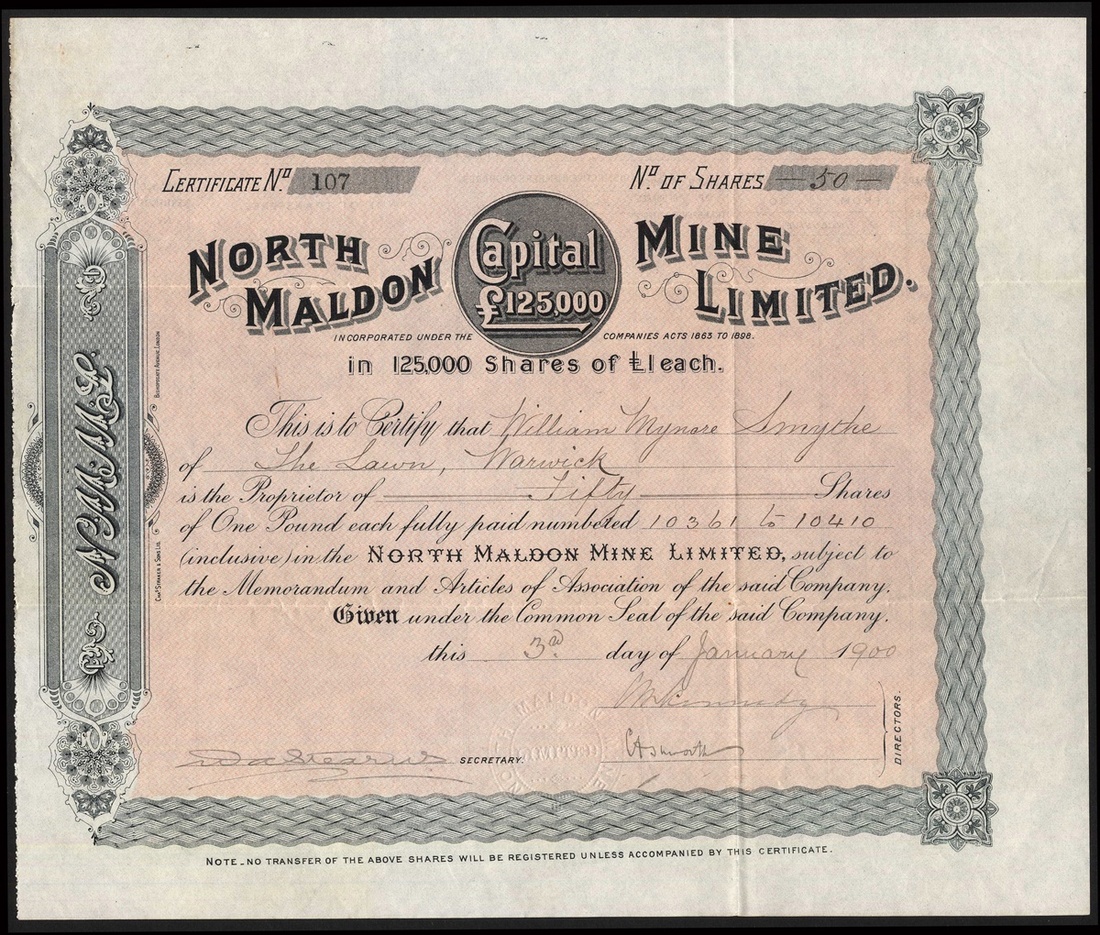 CERTIFICATE Nº 107
Nº OF SHARES — 50 —
NORTH MALDON MINE LIMITED.
Capital £125,000
INCORPORATED UNDER THE COMPANIES ACTS 1863 TO 1898.
in 125,000 Shares of £1 each.
This is to Certify that William Mynore Smythe
of The Lawn, Warwick
is the Proprietor of Fifty Shares
of One Pound each fully paid numbered 10361 to 10410
(inclusive) in the NORTH MALDON MINE LIMITED, subject to
the Memorandum and Articles of Association of the said Company.
Given under the Common Seal of the said Company,
this 3rd day of January 1900
SECRETARY.
DIRECTORS.
NOTE_NO TRANSFER OF THE ABOVE SHARES WILL BE REGISTERED UNLESS ACCOMPANIED BY THIS CERTIFICATE.
N.M.M.L.
CHAS STRAKER & SONS LTD. BISHOPSGATE AVENUE, LONDON
MALDON
LIMITED